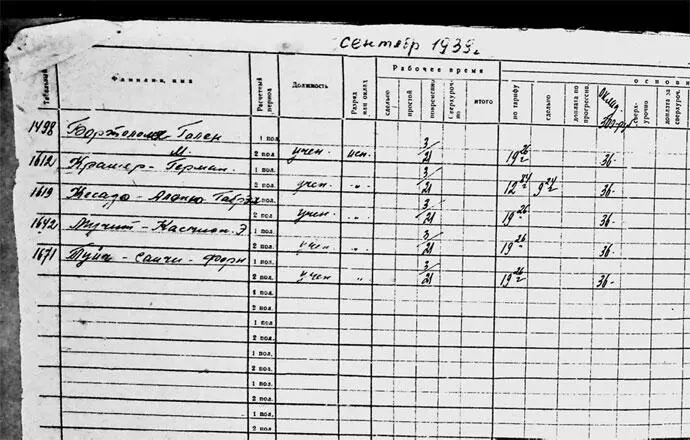 сентябр 1939г
Рабочее время
основн
Табельный
Фамилия, имя
Расчетный период
Должность
Разряд или оклад
сдельно
простой
повременно
Сверхурочно
итого
по тарифу
сдельно
доплата по прогрессив.
Оклад
300 руб
Сверхурочно
доплата за сверхуроч.
1498 Бартоломе Гален 1 пол. 3
М. 2 пол. учен исп. 21 19 26 36-
1612 Крамер - Герман 1 пол. 3
2 пол. учен " 21 12 84 9 24 36-
1619 Кесада - Алонсо Габрэл 1 пол. 3
2 пол. учен " 21 19 26 36-
1642 - Кастион Э 1 пол. 3
2 пол. учен " 21 19 26 36-
1671 - санчи - форн 1 пол. 3
2 пол. учен " 21 19 26 36-
1 пол.
2 пол.
1 пол.
2 пол.
1 пол.
2 пол.
1 пол.
2 пол.